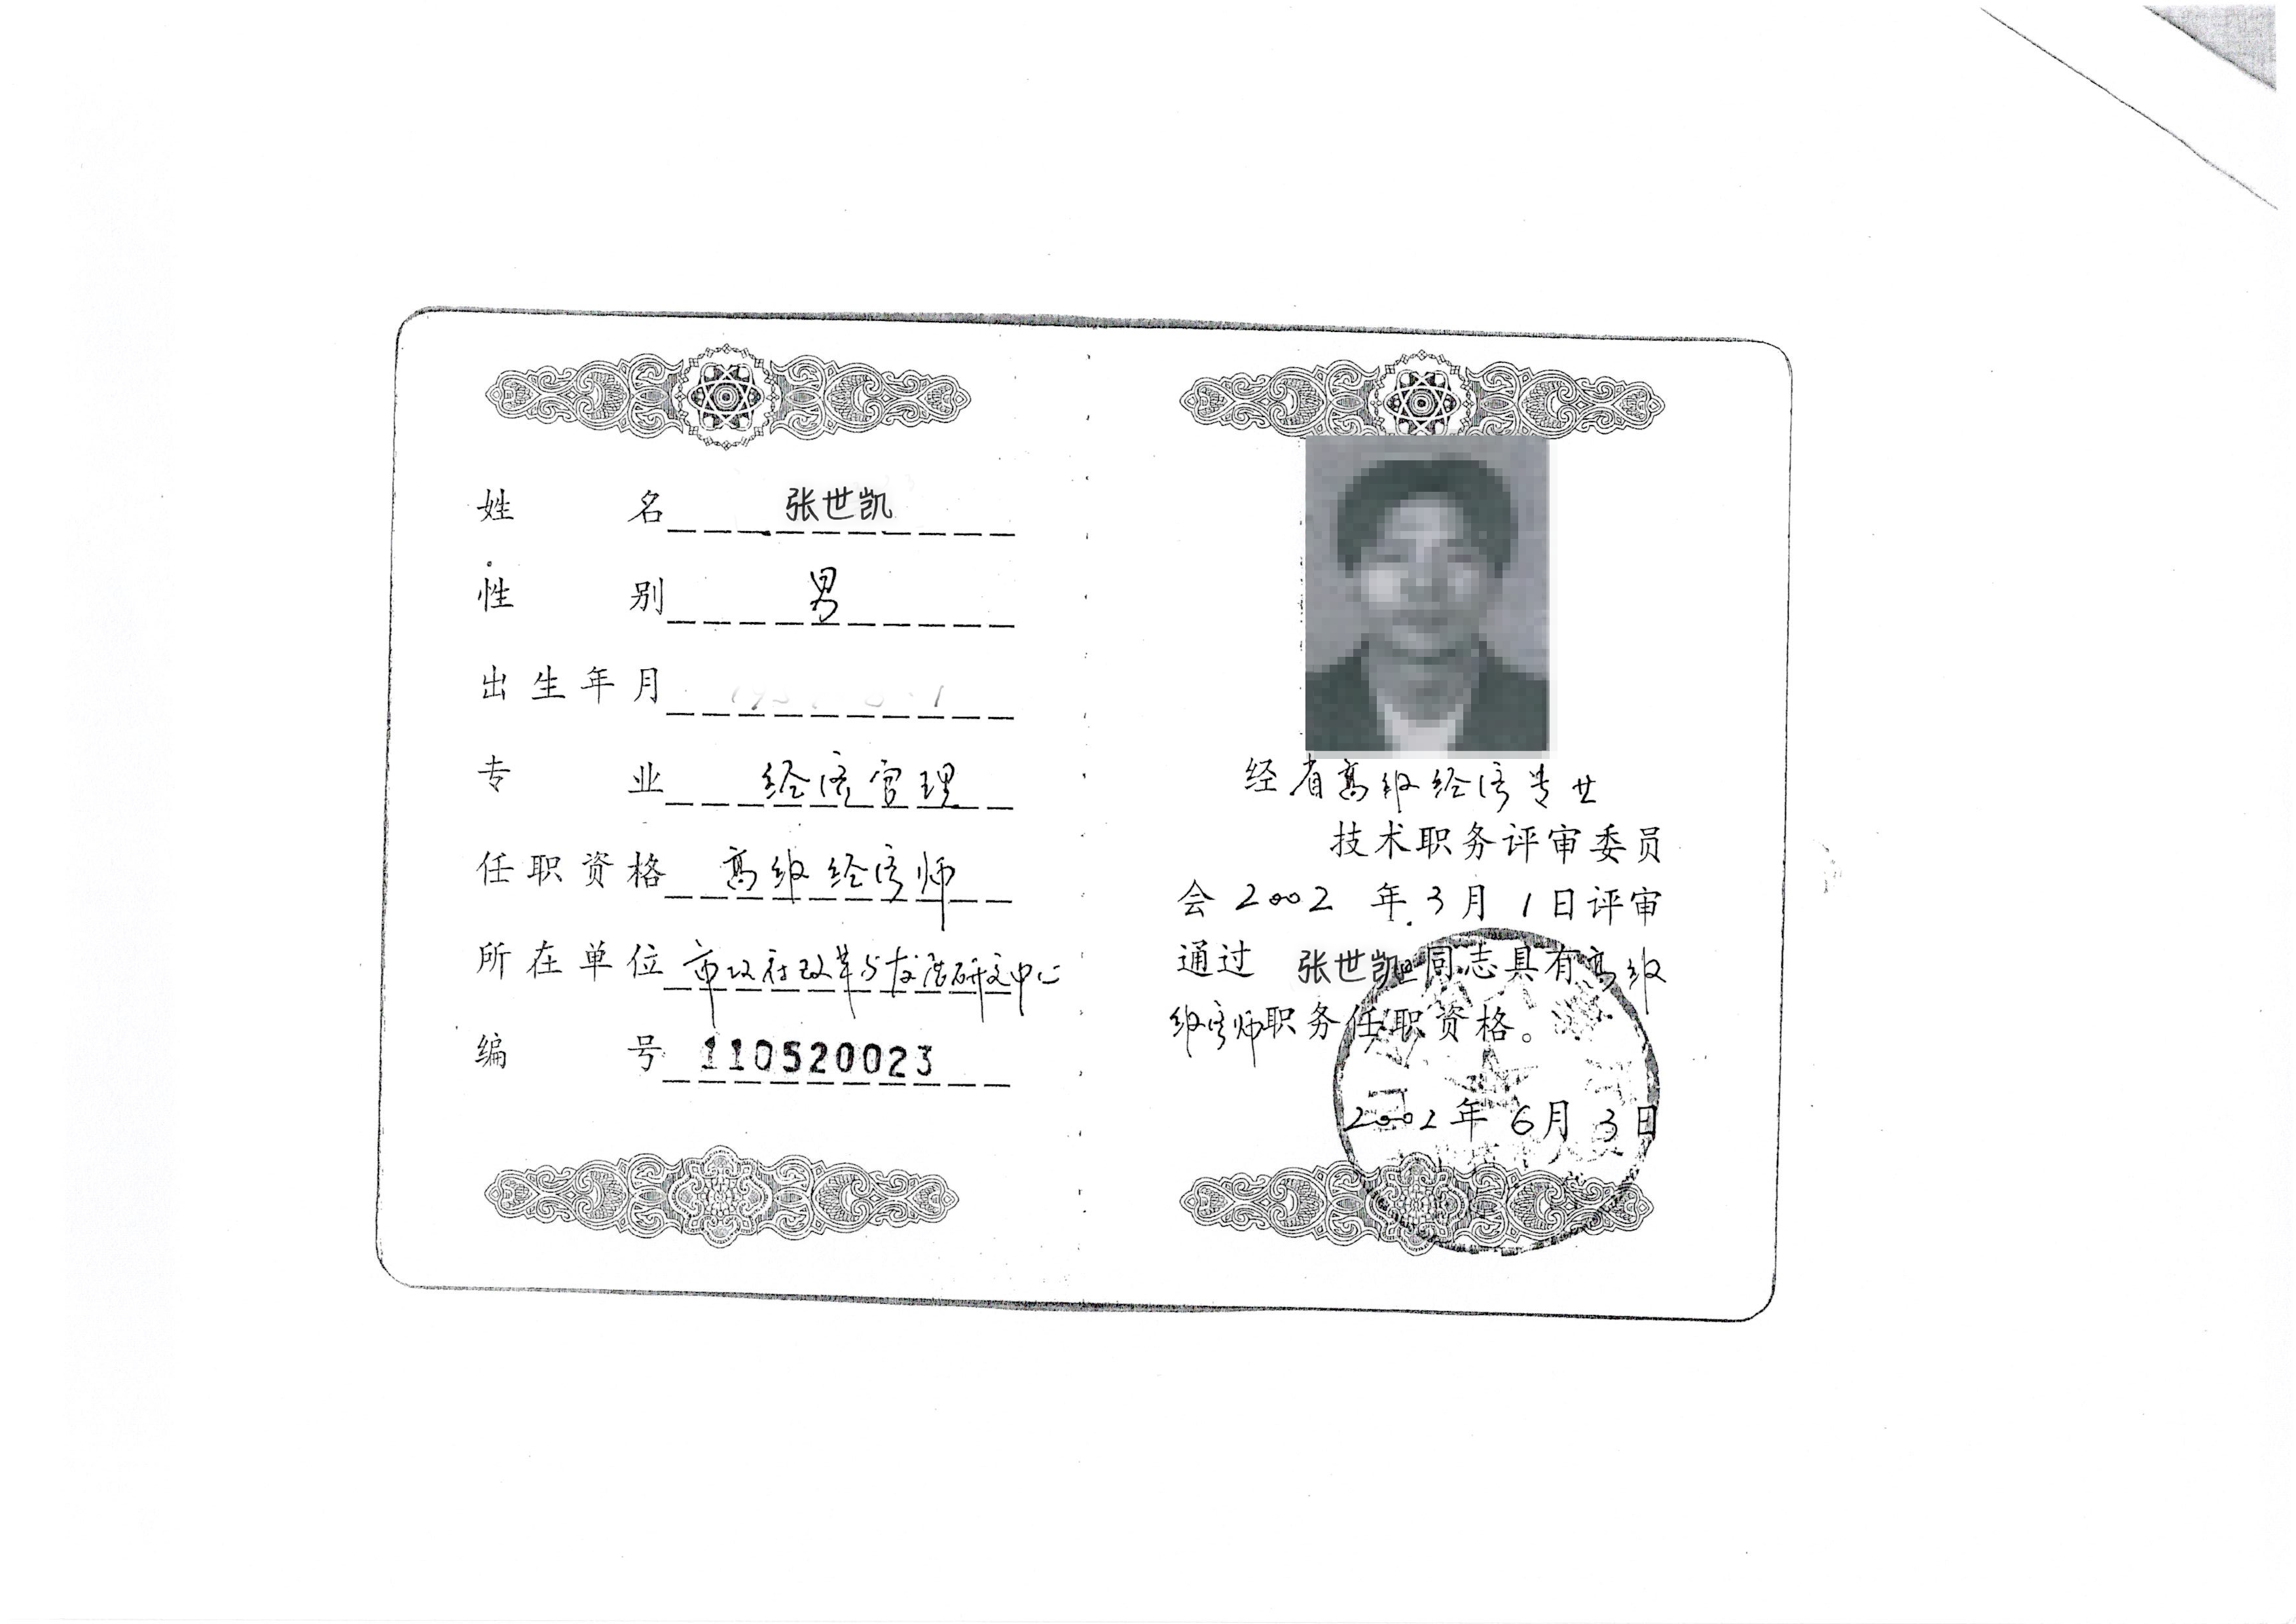 姓名 张世凯
性别 男
出生年月
专业 经济管理
任职资格 高级经济师
所在单位 市政府改革与发展研究中心
编号 110520023
经省高级经济专业
技术职务评审委员
会2002年3月1日评审
通过 张世凯 同志具有高级
经济师职务任职资格。
2002年6月3日